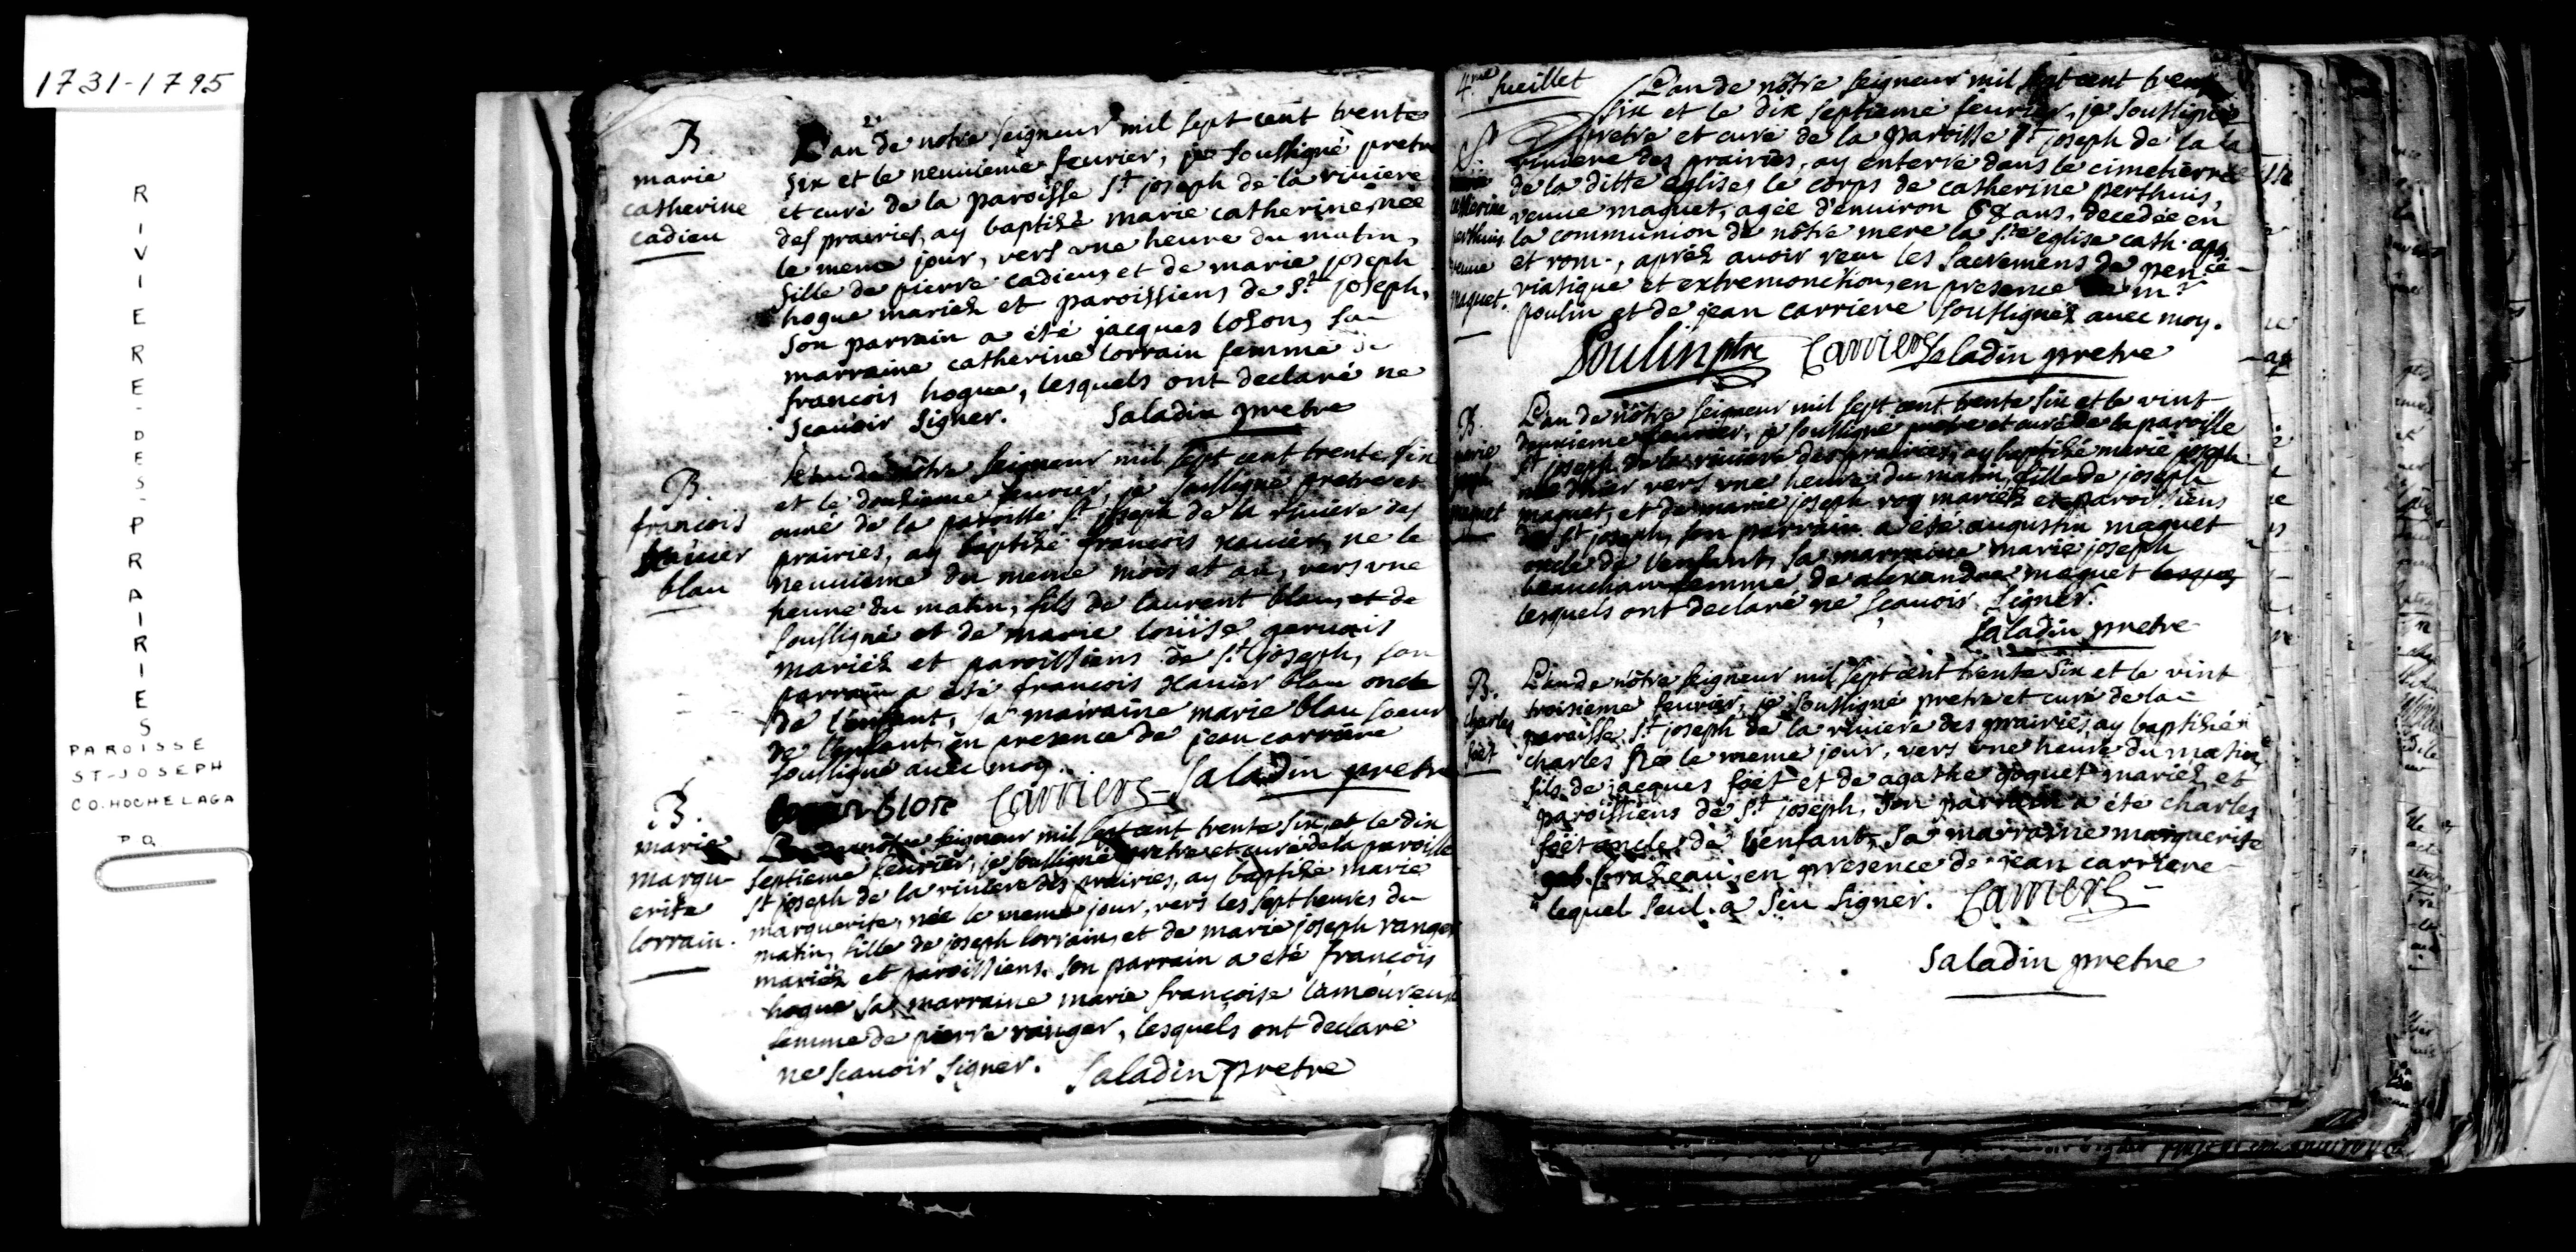 1731-1795
RIVIERE-DES-PRAIRIES
PAROISSE
ST-JOSEPH
CO. HOCHELAGA
PQ
B
marie
catherine
cadieu
L'an de notre seigneur mil sept cent trente
six et le neuuieme feurier, je soussigné pretre
et curé de la paroisse St joseph de la riuiere
des prairies, ay baptizé marie catherine, née
le meme jour, vers vne heure du matin,
fille de pierre cadieu, et de marie joseph
hogue mariez et paroissiens de St joseph,
son parrain a été jacques lozon, sa
marraine catherine lorrain femme de
francois hogue, lesquels ont declaré ne
scauoir signer. Saladin pretre
B.
francois
xauier
blau
L'an de nôtre seigneur mil sept cent trente six
et le douzieme feurier, je soussigné pretre et
curé de la paroisse St joseph de la riuiere des
prairies, ay baptizé francois xauier, né le
neuuieme du meme mois et an, vers vne
heure du matin, fils de laurent blau, et de
soussigné et de marie loüise geruais
mariez et paroissiens de St joseph, son
parrain a été francois xauier blau oncle
de l'enfant, sa mairaine marie blau soeur
de l'enfant, en presence de jean carriere
soussigné auec moy.
blore Carriere Saladin pretre
B.
marie
margu-
erite
lorrain.
L'an de nôtre seigneur mil sept cent trente six, et le dix
septieme feurier, je soussigné pretre et curé de la paroisse
St joseph de la riuiere des prairies, ay baptizé marie
marguerite, née le meme jour, vers les sept heures du
matin, fille de joseph lorrain, et de marie joseph ranger
mariéz et paroissiens. son parrain a été françois
hogue sa marraine marie françoise lamoureux
femme de pierre ranger, lesquels ont declaré
ne scauoir signer. Saladin pretre
4me fueillet
S
marie
catherine
perthuis
veuue
maquet.
L'an de nôtre seigneur mil sept cent trente
six et le dix septieme feurier, je soussigné
pretre et curé de la paroisse St joseph de la la
riuiere des prairies, ay enterré dans le cimetierre
de la ditte eglise, le corps de catherine perthuis,
veuue maquet, agée d'enuiron 68 ans, decedée en
la communion de nôtre mere la Ste eglise cath. ap.
et rom., apréz auoir reçu les sacremens de pence
viatique et extremonction, en presence de mr
poulin et de jean carriere soussignéz auec moy.
Poulin ptre Carriere Saladin pretre
B.
marie
joseph
maquet
L'an de nôtre seigneur mil sept cent trente six et le vint
deuxieme feurier, je soussigné pretre et curé de la paroisse
St joseph de la riuiere des prairies, ay baptizé marie joseph
née hier vers vne heure du matin, fille de joseph
maquet, et de marie joseph roy mariéz et paroissiens
de St joseph, son parrain a été augustin maquet
oncle de l'enfant, sa marraine marie joseph
beauchamp femme de alexandre maquet lesquels
lesquels ont declaré ne scauoir signer.
Saladin pretre
B.
charles
foet
L'an de nôtre seigneur mil sept cent trente six et le vint
troisieme feurier, je soussigné pretre et curé de la
paroisse St joseph de la riuiere des prairies, ay baptizé
charles née le meme jour, vers vne heure du matin,
fils de jacques foet et de agathe goguet mariéz et
paroissiens de St joseph, son parrain a été charles
foet oncle de l'enfant, sa marraine marguerite
en presence de jean carriere
lequel seul a seu signer. Carriere
Saladin pretre